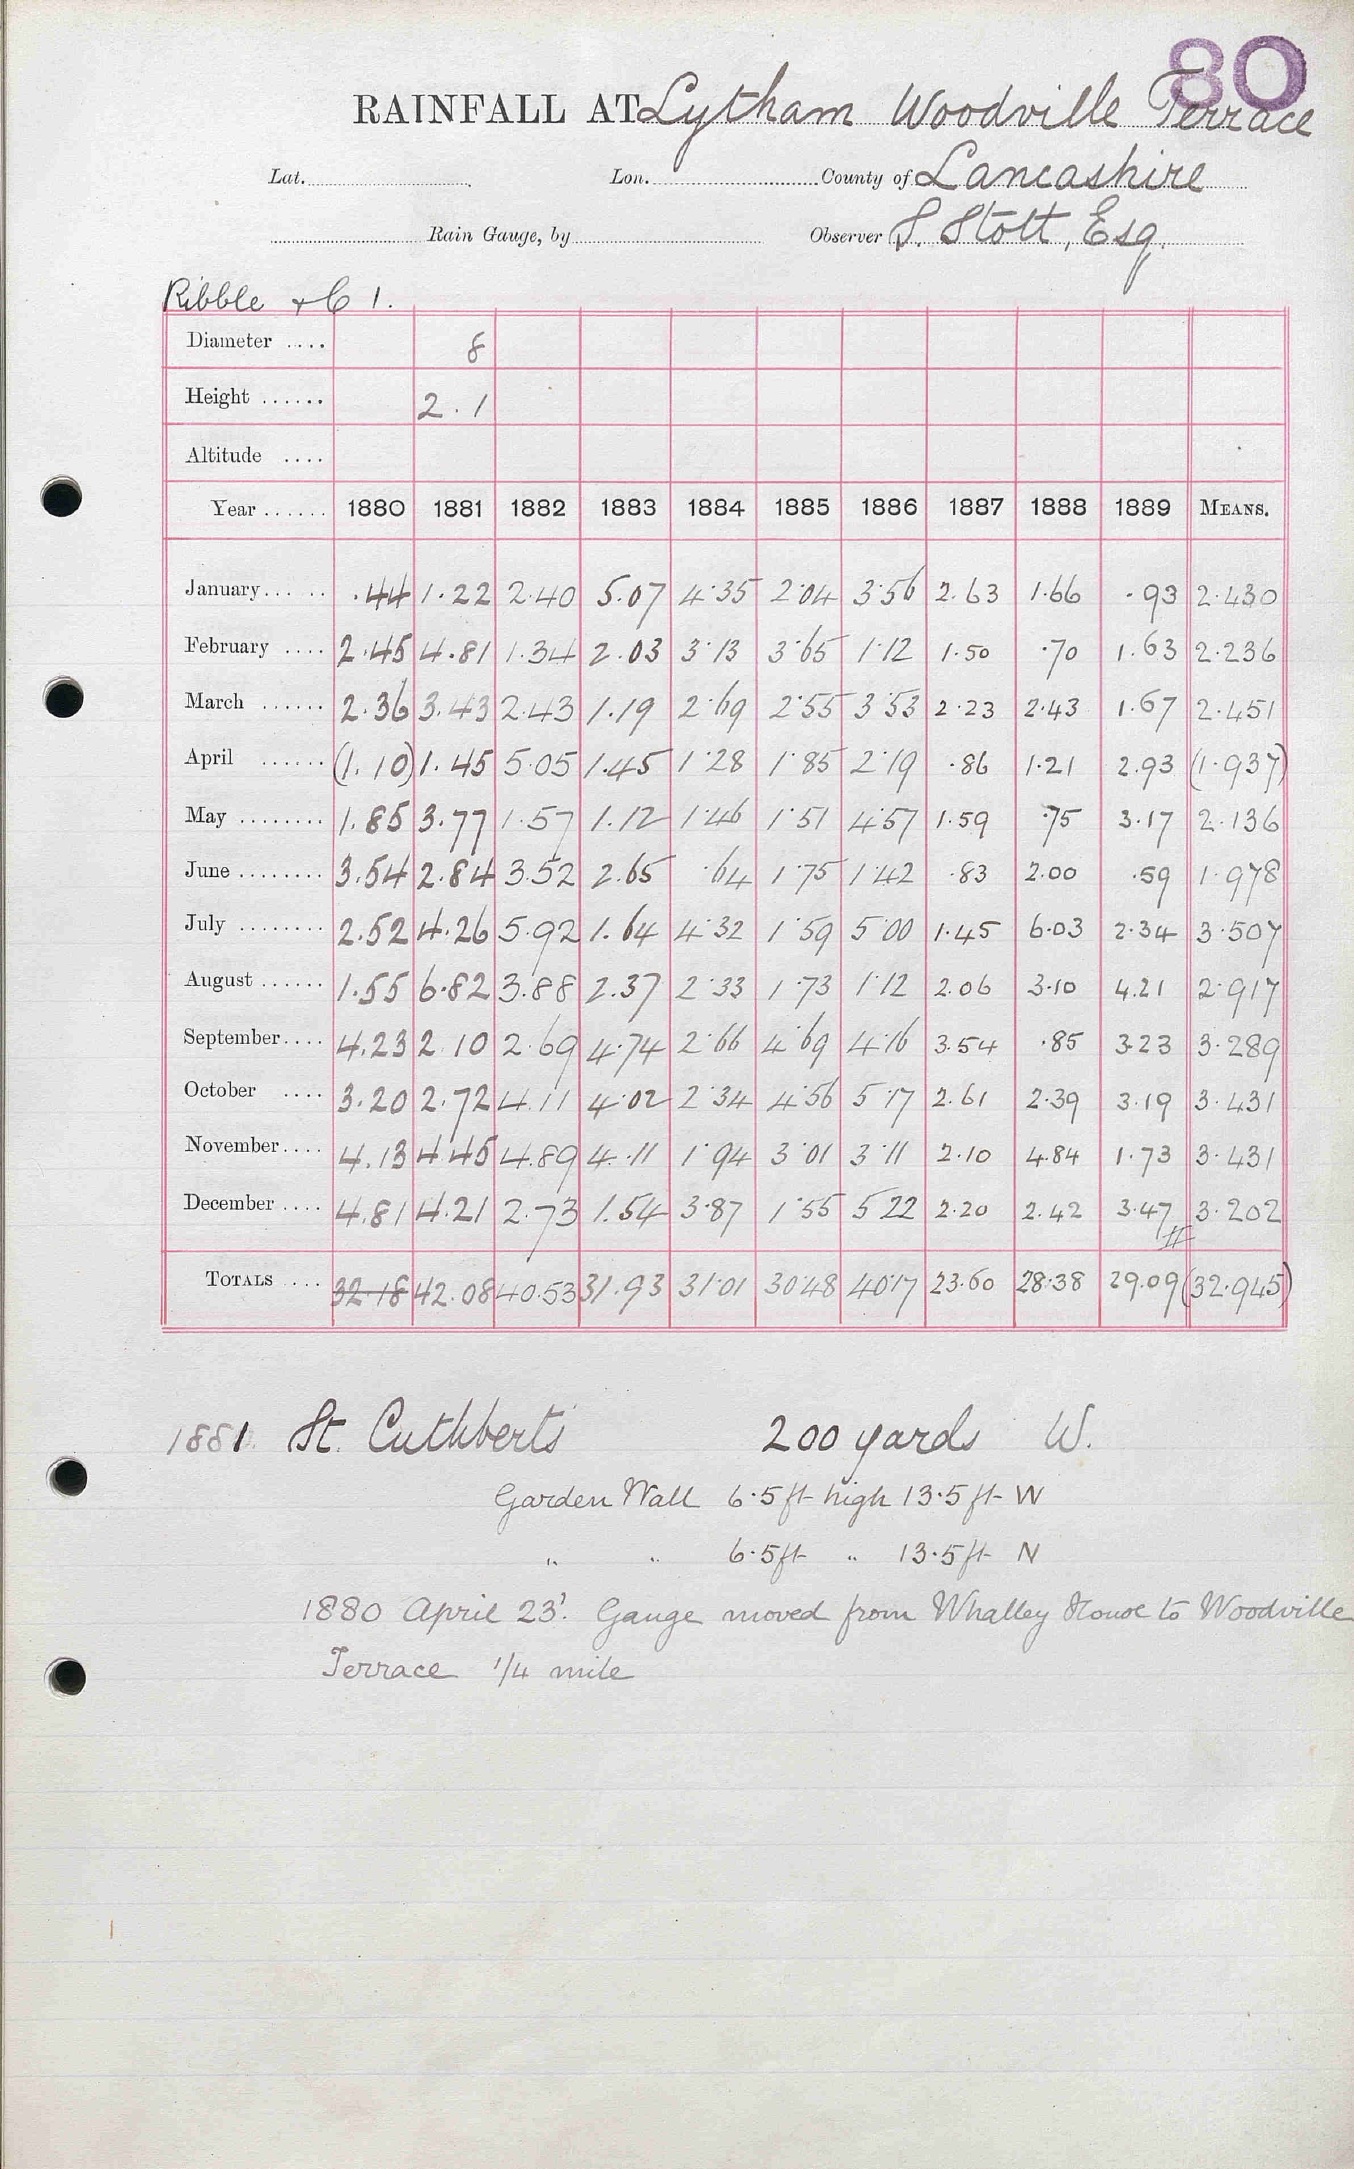 80
RAINFALL AT Lytham Woodville Terrace
Lat. Lon. County of Lancashire
Rain Gauge, by Observer S. Stott, Esq.
Ribble &c 1.
Diameter .... 8
Height ...... 2.1
Altitude ....
Year ...... 1880 1881 1882 1883 1884 1885 1886 1887 1888 1889 MEANS.
January... .. .44 1.22 2.40 5.07 4.35 2.04 3.56 2.63 1.66 .93 2.430
February .... 2.45 4.81 1.34 2.03 3.13 3.65 1.12 1.50 .70 1.63 2.236
March ...... 2.36 3.43 2.43 1.19 2.69 2.55 3.53 2.23 2.43 1.67 2.451
April ...... (1.10) 1.45 5.05 1.45 1.28 1.85 2.19 .86 1.21 2.93 (1.937)
May ........ 1.85 3.77 1.57 1.12 1.46 1.51 4.57 1.59 .75 3.17 2.136
June ........ 3.54 2.84 3.52 2.65 .64 1.75 1.42 .83 2.00 .59 1.978
July ........ 2.52 4.26 5.92 1.64 4.32 1.59 5.00 1.45 6.03 2.34 3.507
August ...... 1.55 6.82 3.88 2.37 2.33 1.73 1.12 2.06 3.10 4.21 2.917
September.... 4.23 2.10 2.69 4.74 2.66 4.69 4.16 3.54 .85 3.23 3.289
October .... 3.20 2.72 4.11 4.02 2.34 4.56 5.17 2.61 2.39 3.19 3.431
November.... 4.13 4.45 4.89 4.11 1.94 3.01 3.11 2.10 4.84 1.73 3.431
December .... 4.81 4.21 2.73 1.54 3.87 1.55 5.22 2.20 2.42 3.47 3.202
TOTALS .... 32.18 42.08 40.53 31.93 31.01 30.48 40.17 23.60 28.38 29.09 (32.945)
1881. St. Cuthberts 200 yards W.
Garden Wall 6.5 ft high 13.5 ft W
" " 6.5 ft " 13.5 ft N
1880 April 23. Gauge moved from Whalley House to Woodville
Terrace 1/4 mile